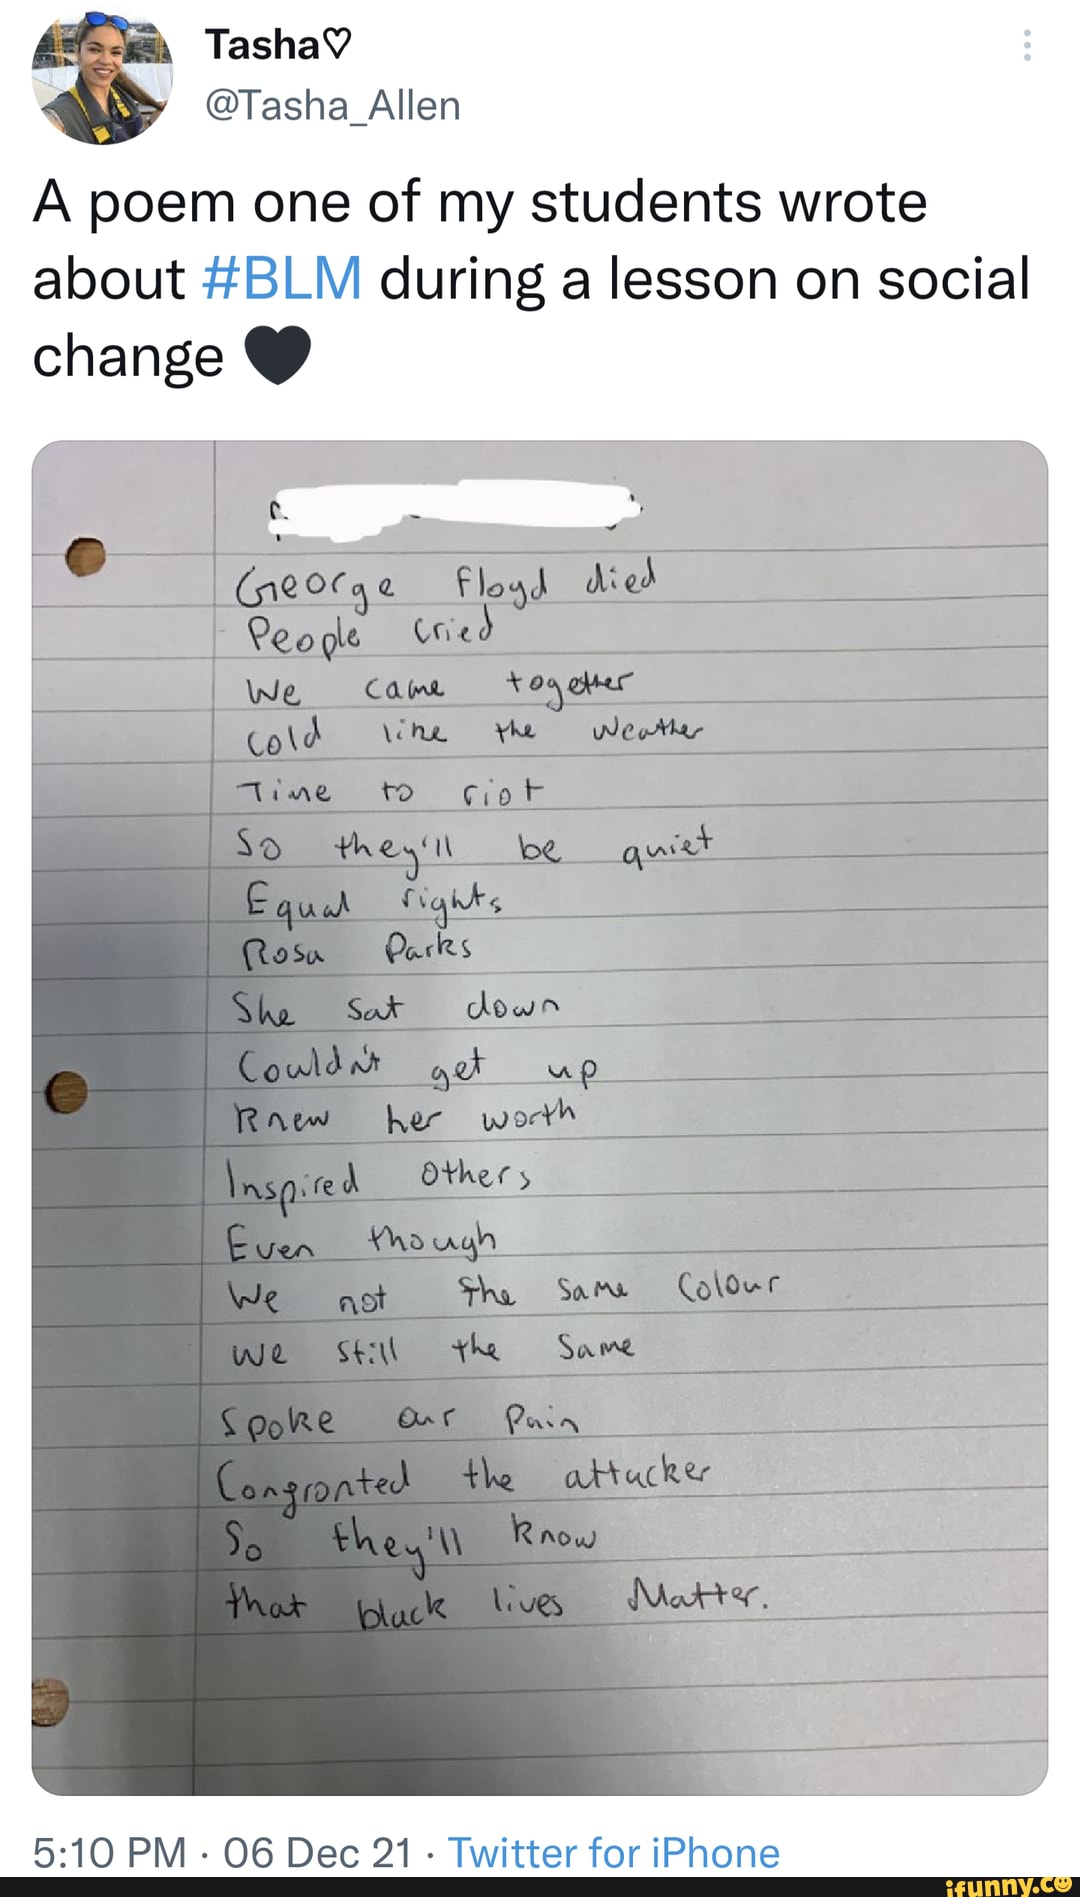 Tasha♡
@Tasha_Allen
A poem one of my students wrote
about #BLM during a lesson on social
change 🖤
George Floyd died
People cried
We came together
Cold like the weather
Time to riot
So they'll be quiet
Equal rights
Rosa Parks
She sat down
Couldn't get up
Knew her worth
Inspired others
Even though
We not the same colour
we still the same
Spoke our pain
Congronted the attacker
So they'll know
that black lives Matter.
5:10 PM · 06 Dec 21 · Twitter for iPhone
ifunny.co